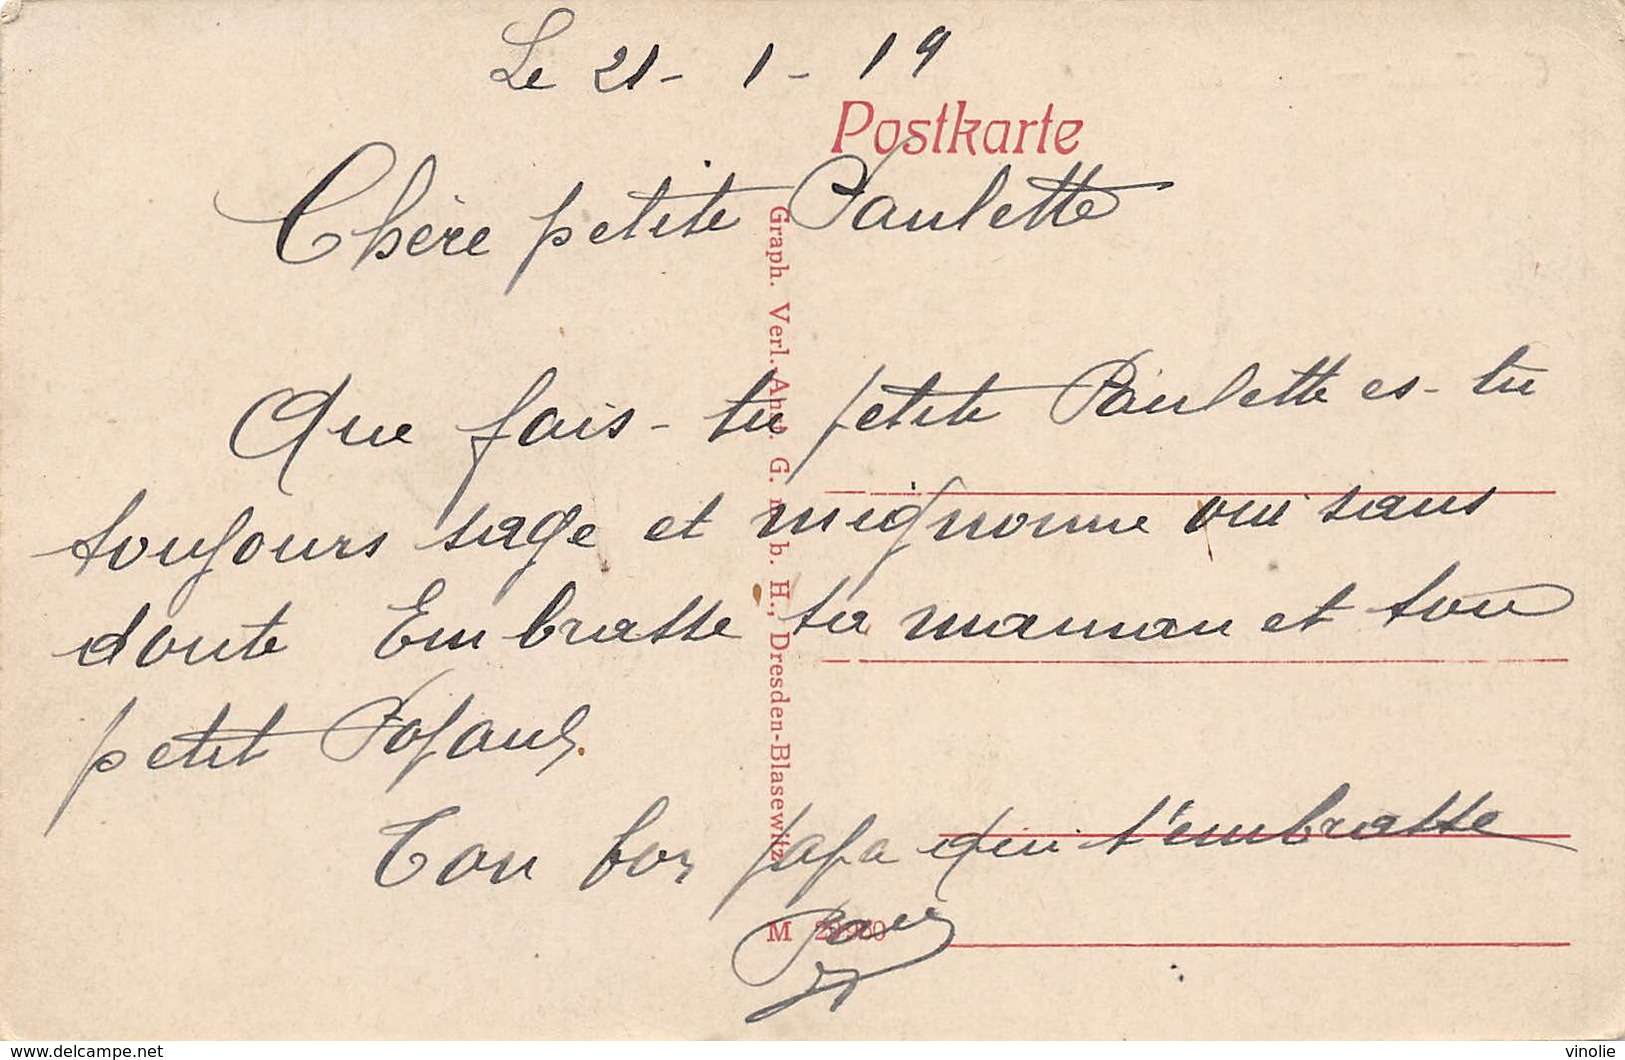 Le 21 - 1 - 19
Postkarte
Chère petite Paulette
Que fais-tu petite Paulette es-tu
toujours sage et mignonne oui sans
doute Embrasse ta maman et ton
petit
Ton bon papa qui t'embrasse
Paul
Graph. Verl.-Anst. G. m. b. H., Dresden-Blasewitz
M
www.delcampe.net
vinolie